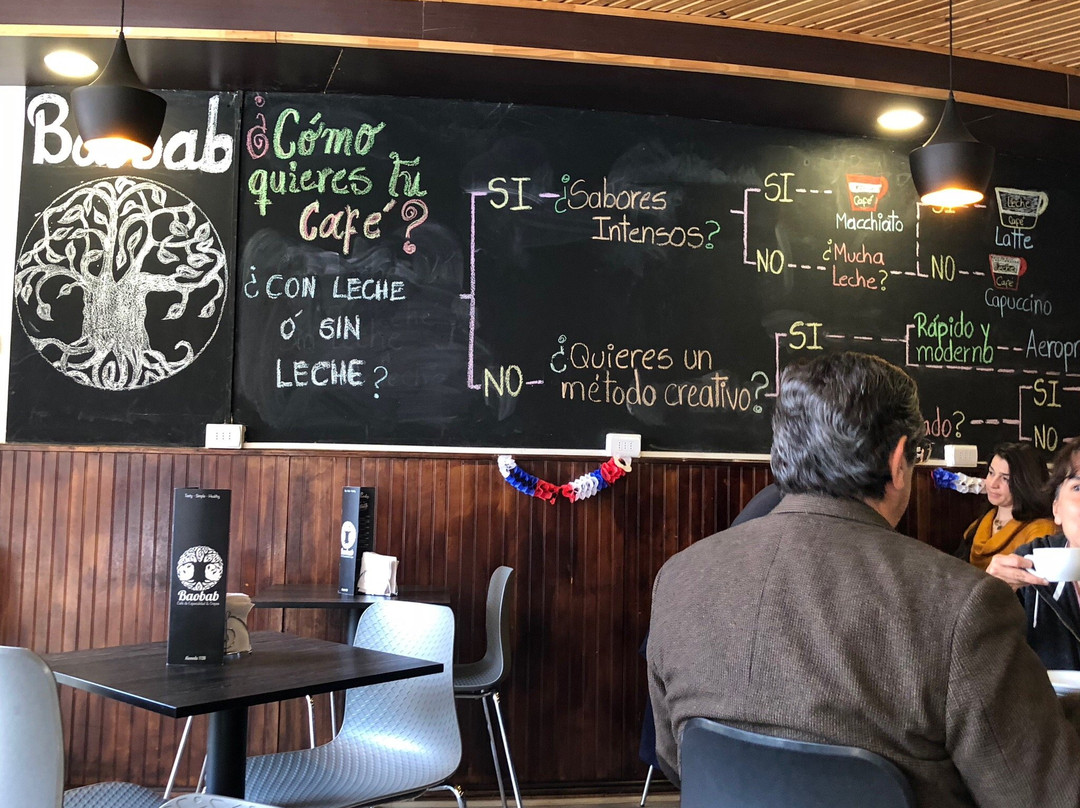 Baobab
¿Cómo
quieres tu
Café?
¿CON LECHE
Ó SIN
LECHE?
SI
¿Sabores
Intensos?
SI
Café
Macchiato
NO
¿Mucha
Leche?
SI
Leche
Café
Latte
NO
Leche
Café
Capuccino
NO
¿Quieres un
método creativo?
SI
Rápido y
moderno
SI
NO
Baobab